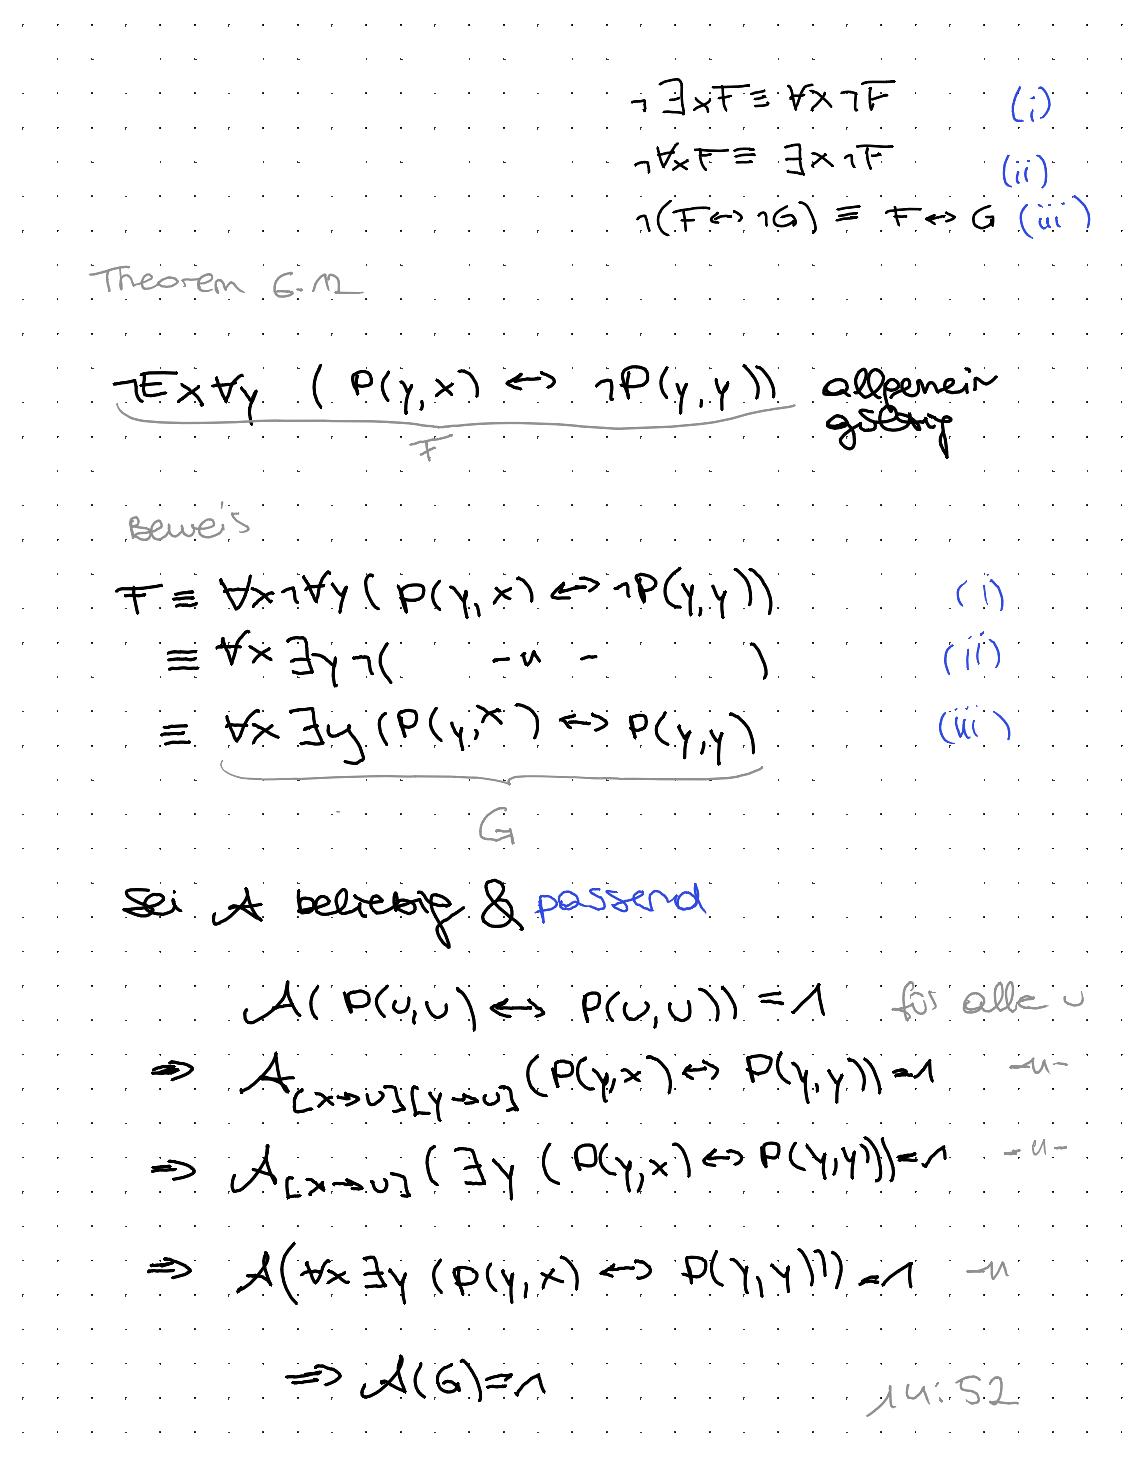 ¬∃xF ≡ ∀x¬F (i)
¬∀xF ≡ ∃x¬F (ii)
¬(F ↔ ¬G) ≡ F ↔ G (iii)
Theorem 6.12
¬∃x∀y ( P(y,x) ↔ ¬P(y,y)) allgemein
gültig
F
Beweis
F ≡ ∀x¬∀y ( P(y,x) ↔ ¬P(y,y)) (i)
≡ ∀x ∃y ¬( -"- ) (ii)
≡ ∀x ∃y (P(y,x) ↔ P(y,y) (iii)
G
Sei A beliebig & passend
A( P(u,u) ↔ P(u,u)) = 1 für alle u
⇒ A[x→u][y→u] (P(y,x) ↔ P(y,y)) = 1 -"-
⇒ A[x→u] ( ∃y ( P(y,x) ↔ P(y,y))) = 1 -"-
⇒ A(∀x ∃y (P(y,x) ↔ P(y,y))) = 1 -"
⇒ A(G) = 1
14:52